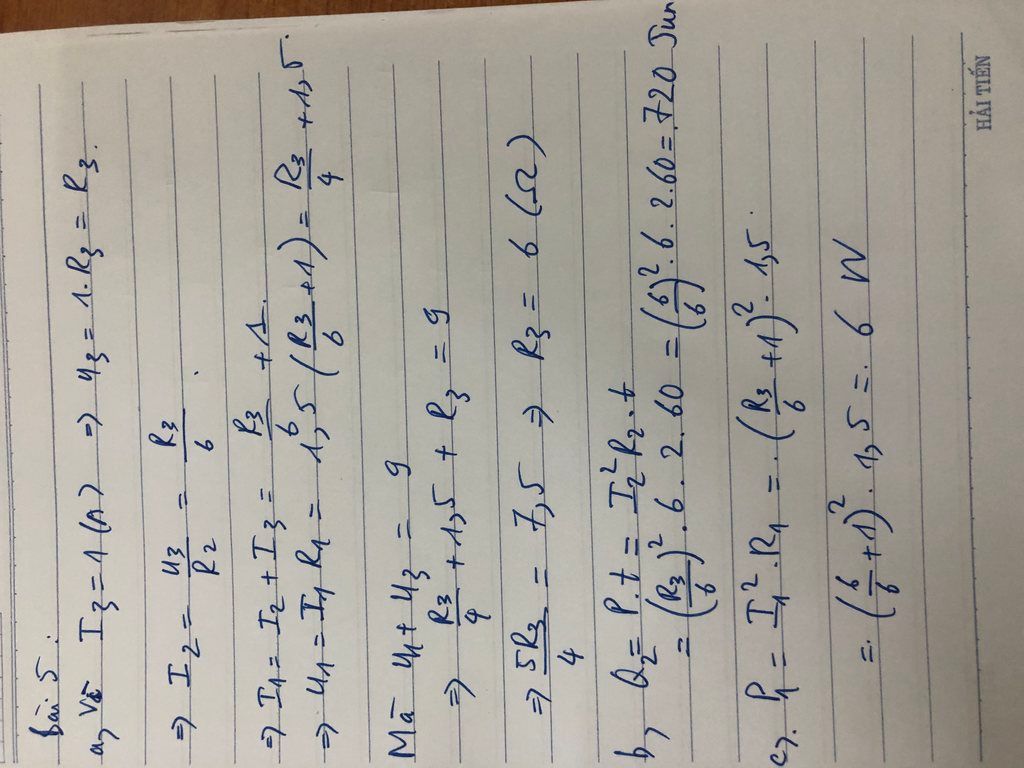 Bài 5:
a, Vì I₃ = 1 (A) => U₃ = 1.R₃ = R₃.
=> I₂ = U₃/R₂ = R₃/6.
=> I₁ = I₂ + I₃ = R₃/6 + 1.
=> U₁ = I₁R₁ = 1,5 (R₃/6 + 1) = R₃/4 + 1,5.
Mà U₁ + U₃ = 9
=> R₃/4 + 1,5 + R₃ = 9
=> 5R₃/4 = 7,5 => R₃ = 6 (Ω)
b, Q₂ = P.t = I₂²R₂.t
= (R₃/6)².6.2.60 = (6/6)².6.2.60 = 720 Jun
c, P₁ = I₁².R₁ = (R₃/6 + 1)².1,5.
= (6/6 + 1)².1,5 = 6 W
HẢI TIẾN